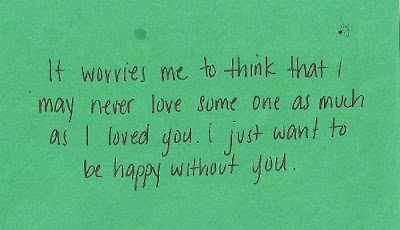 It worries me to think that i
may never love some one as much
as I loved you. i just want to
be happy without you.